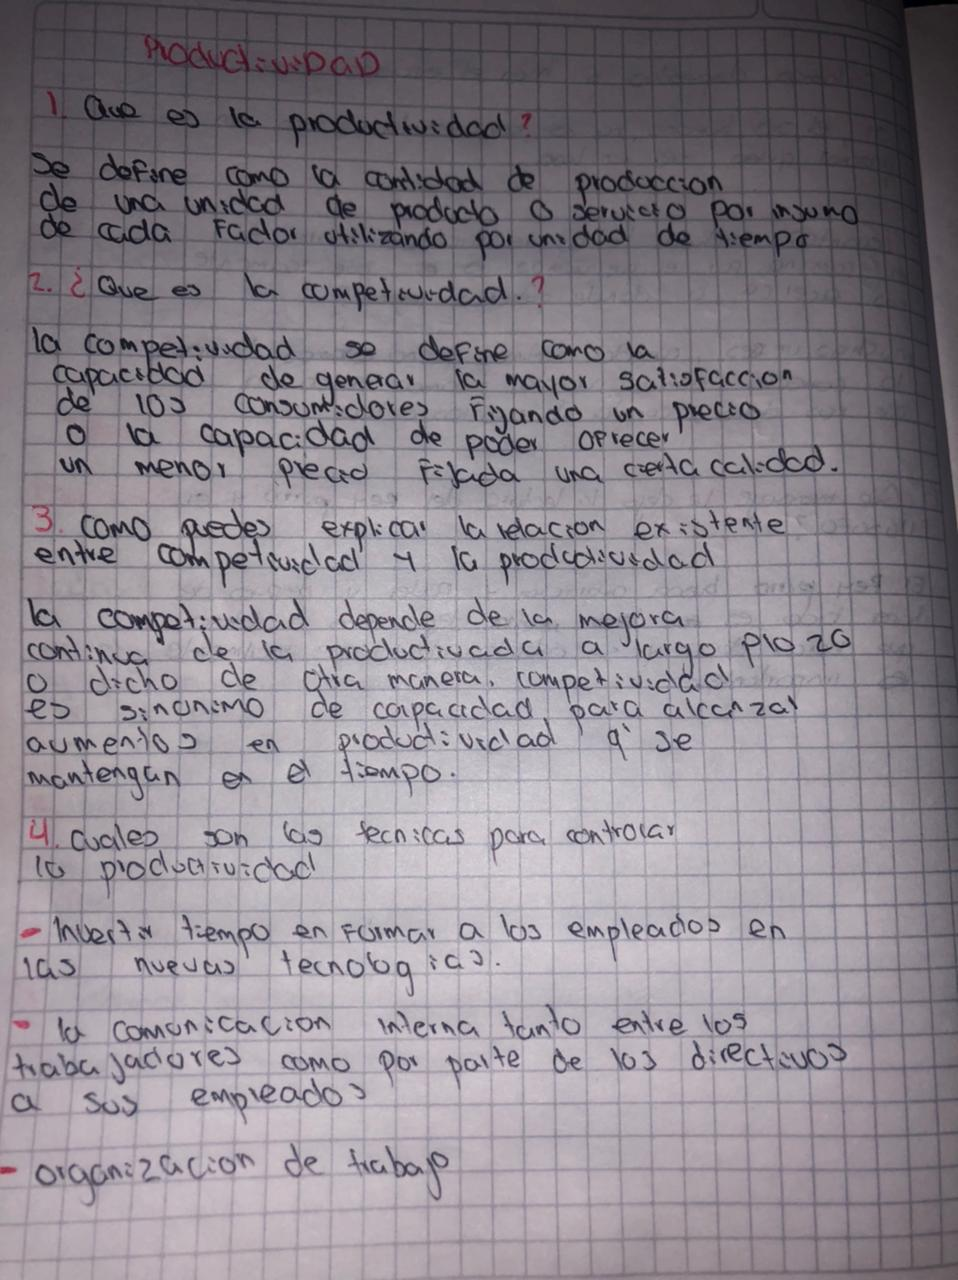 ProductiviDaD
1. Que es la productividad?
Se define como la cantidad de produccion
de una unidad de producto o servicio por insumo
de cada Factor utilizando por unidad de tiempo
2. ¿Que es la competividad.?
la competividad se define como la
capacidad de generar la mayor satisfaccion
de los consumidores Fijando un precio
o la capacidad de poder oFrecer
un menor precio Fijada una cierta calidad.
3. como puedes explicar la relacion existente
entre competividad y la productividad
la competividad depende de la mejora
continua de la productivada a largo plozo
o dicho de otra manera, competividad
es sinonimo de capacidad para alcanzar
aumentos en productividad q' se
mantengan en el tiempo.
4. cuales son las tecnicas para controlar
la productividad
- Invertir tiempo en Formar a los empleados en
las nuevas tecnologias.
- la comunicacion interna tanto entre los
trabajadores como por parte de los directivos
a sus empleados
- organizacion de trabajo